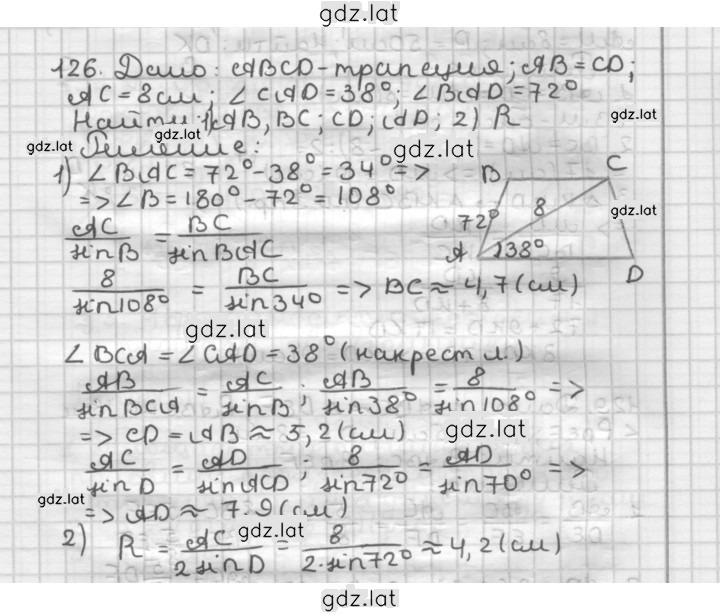 gdz.lat
126. Дано: ABCD-трапеция; AB=CD;
AC=8см; ∠CAD=38°; ∠BAD=72°
Найти: 1) AB, BC; CD; AD; 2) R
gdz.lat
gdz.lat
gdz.lat
gdz.lat
Решение:
1) ∠BAC=72°-38°=34° =>
=> ∠B=180°-72°=108°
AC/sinB = BC/sinBAC
8/sin108° = BC/sin34° => BC≈4,7(см)
B C
8
gdz.lat
72°
A 38°
D
gdz.lat
∠BCA=∠CAD=38° (накрест л.)
AB/sinBCA = AC/sinB; AB/sin38° = 8/sin108° =>
=> CD=AB≈5,2(см)
gdz.lat
AC/sinD = AD/sinACD; 8/sin72° = AD/sin70° =>
gdz.lat
=> AD≈7,9(см)
gdz.lat
2) R = AC/2sinD = 8/2·sin72° ≈4,2(см)
gdz.lat